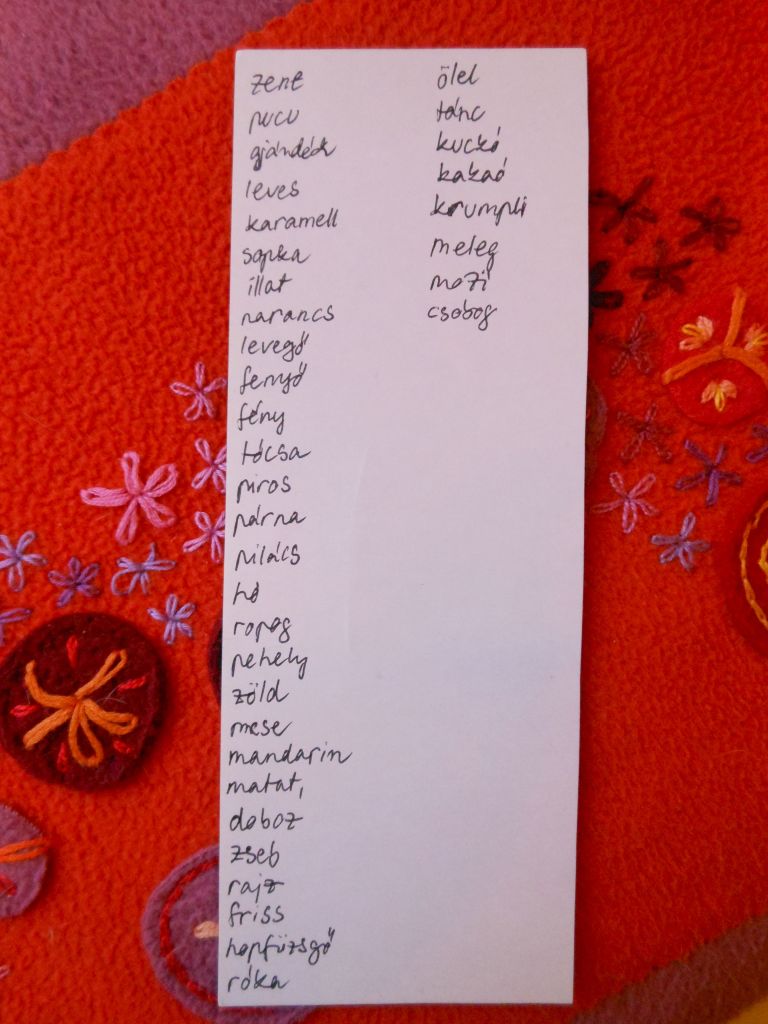 zene
pucu
ajándék
leves
karamell
sapka
illat
narancs
levegő
fenyő
fény
tócsa
piros
párna
pilács
hó
ropog
pehely
zöld
mese
mandarin
matat,
doboz
zseb
rajz
friss
róka
ölel
tánc
kuckó
kakaó
krumpli
meleg
mozi
csobog